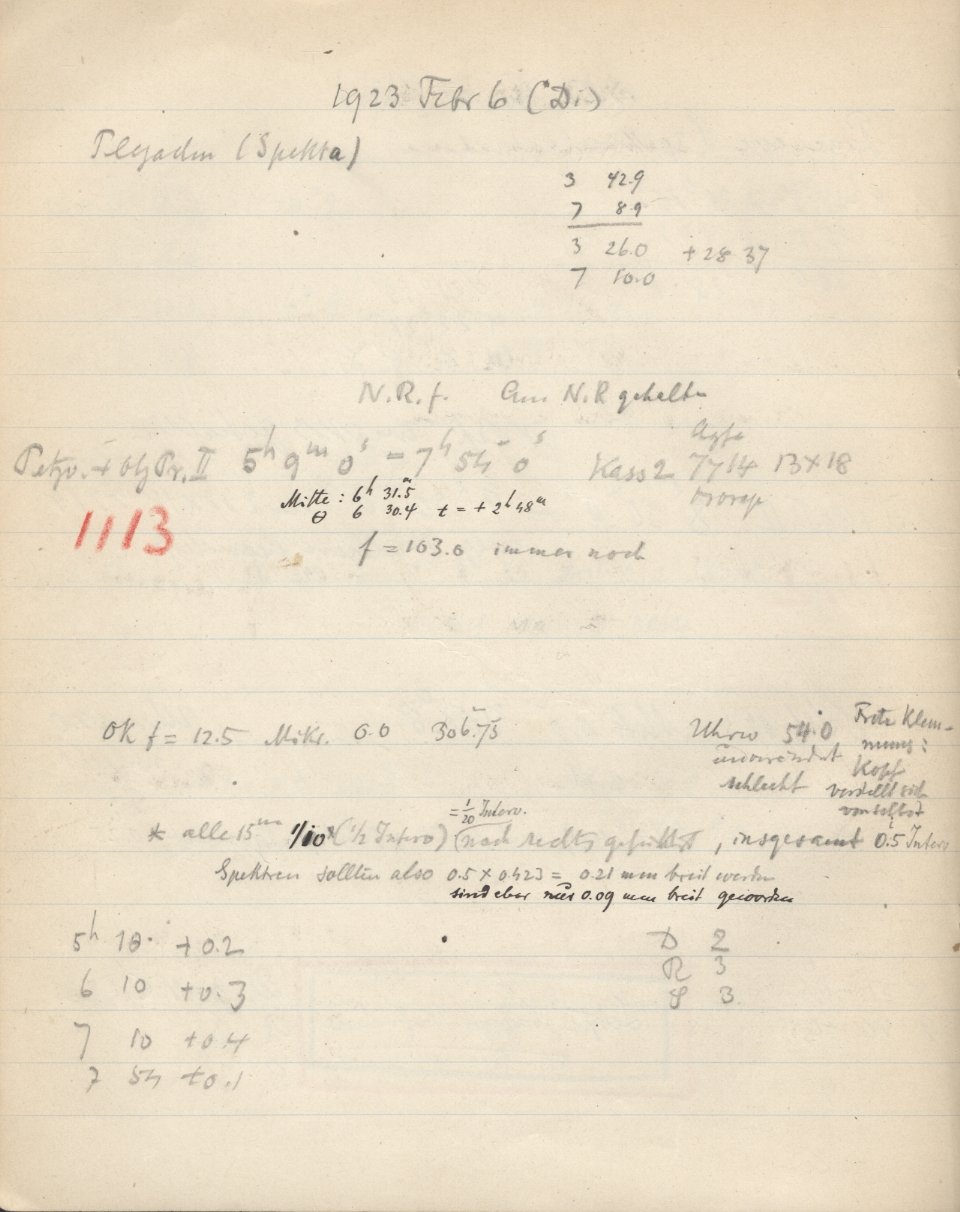 1923 Febr 6 (Di)
Plejaden (Spektra)
3 42.9
7 8.9
3 26.0 + 28 37
7 10.0
N.R.f. Am N.R gehalten
Petzv. + Obj Pr. II 5h 9m 0s = 7h 54m 0s Kass 2 Agfa 7714 13×18
Mitte: 6h 31.5m
θ 6 30.4 t = + 2h 48m
1113
f = 163.0 immer noch
OK f = 12.5 Mikr. 6.0 306.75 Uhrw 54.0
unverändert
schlecht
Kopf
verstellt sich
von selbst
= 1/20 Interv.
* alle 15m 1/10 (1/2 Interv) (nach rechts geführt, insgesamt 0.5 Interv
Spektren sollten also 0.5 × 0.423 = 0.21 mm breit werden
sind aber nur 0.09 mm breit geworden
5h 10 + 0.2
6 10 + 0.3
7 10 + 0.4
7 54 + 0.1
D 2
R 3
S 3